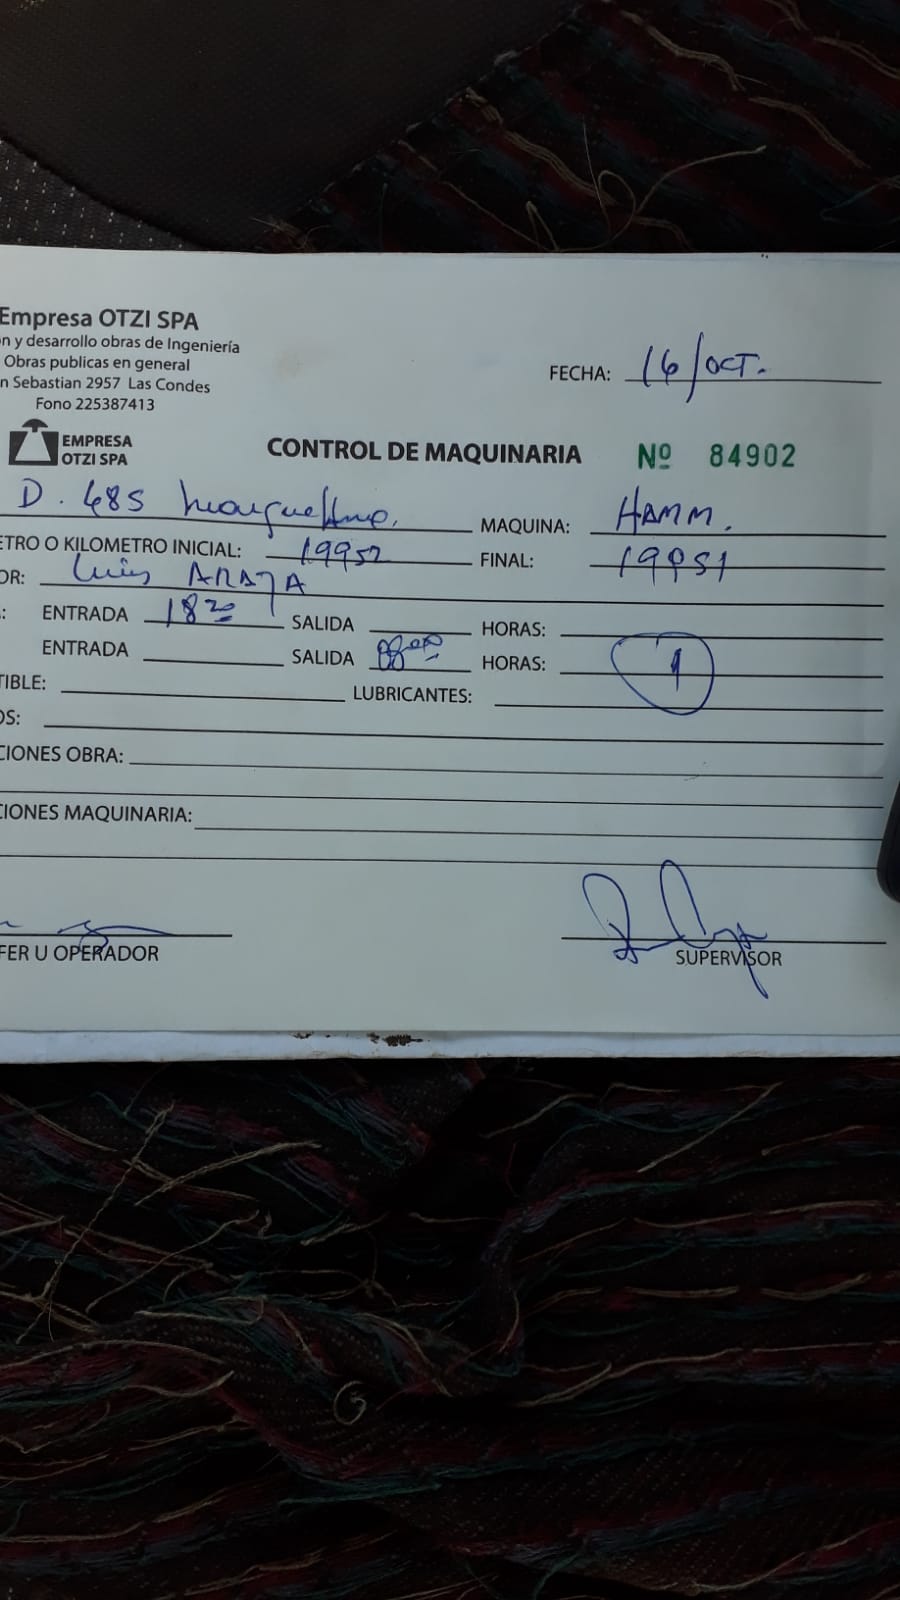 Empresa OTZI SPA
n y desarrollo obras de Ingeniería
Obras publicas en general
n Sebastian 2957 Las Condes
Fono 225387413
FECHA: 16/OCT.
EMPRESA
OTZI SPA
CONTROL DE MAQUINARIA Nº 84902
D. 485 MAQUINA: HAMM.
ETRO O KILOMETRO INICIAL: 19952 FINAL: 19951
OR: Luis ARAYA
: ENTRADA 18 30 SALIDA HORAS:
ENTRADA SALIDA HORAS: 1
TIBLE: LUBRICANTES:
OS:
CIONES OBRA:
CIONES MAQUINARIA:
FER U OPERADOR
SUPERVISOR